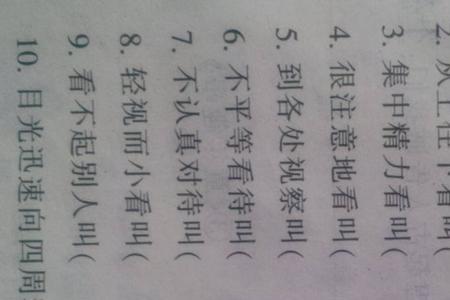 2. 从上往下看叫
3. 集中精力看叫(
4. 很注意地看叫(
5. 到各处视察叫(
6. 不平等看待叫(
7. 不认真对待叫(
8. 轻视而小看叫(
9. 看不起别人叫(
10. 目光迅速向四周